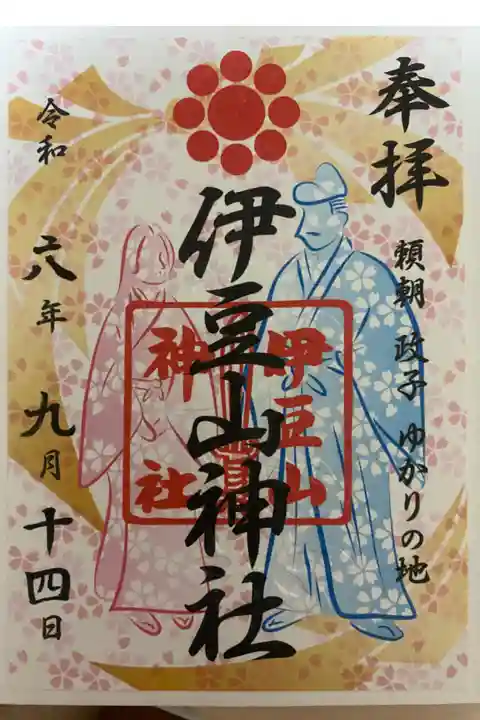 奉拝
頼朝 政子 ゆかりの地
伊豆山神社
伊豆山
神社
令和
六年九月十四日